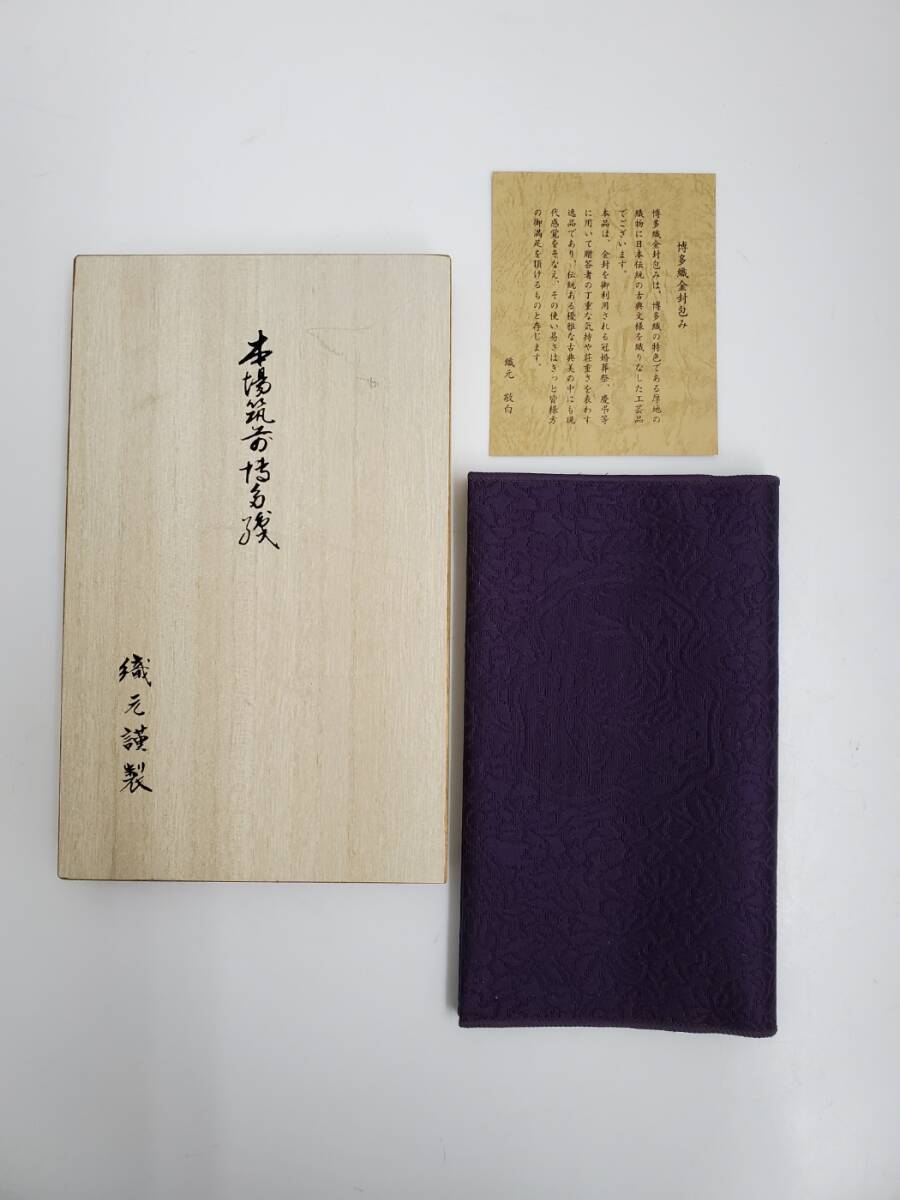 本場筑前博多織
織元謹製
博多織金封包み
博多織金封包みは、博多織の特色である厚地の
織物に日本伝統の古典文様を織りなした工芸品
でございます。
本品は、金封を御利用される冠婚葬祭、慶弔等
に用いて贈答者の丁重な気持や荘重さを表わす
逸品であり、伝統ある優雅な古典美の中にも現
代感覚をそなえ、その使い易さはきっと皆様方
の御満足を頂けるものと存じます。
織元 敬白